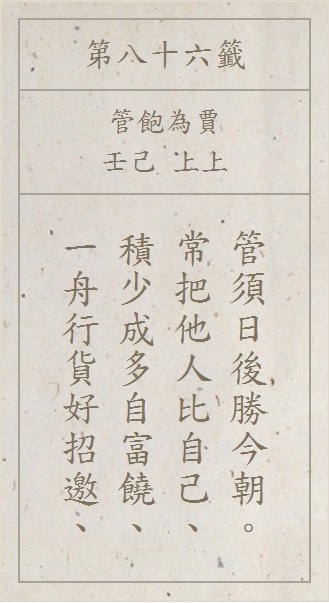 第八十六籤
管飽為賈
壬己 上上
一舟行貨好招邀、
積少成多自富饒、
常把他人比自己、
管須日後勝今朝。